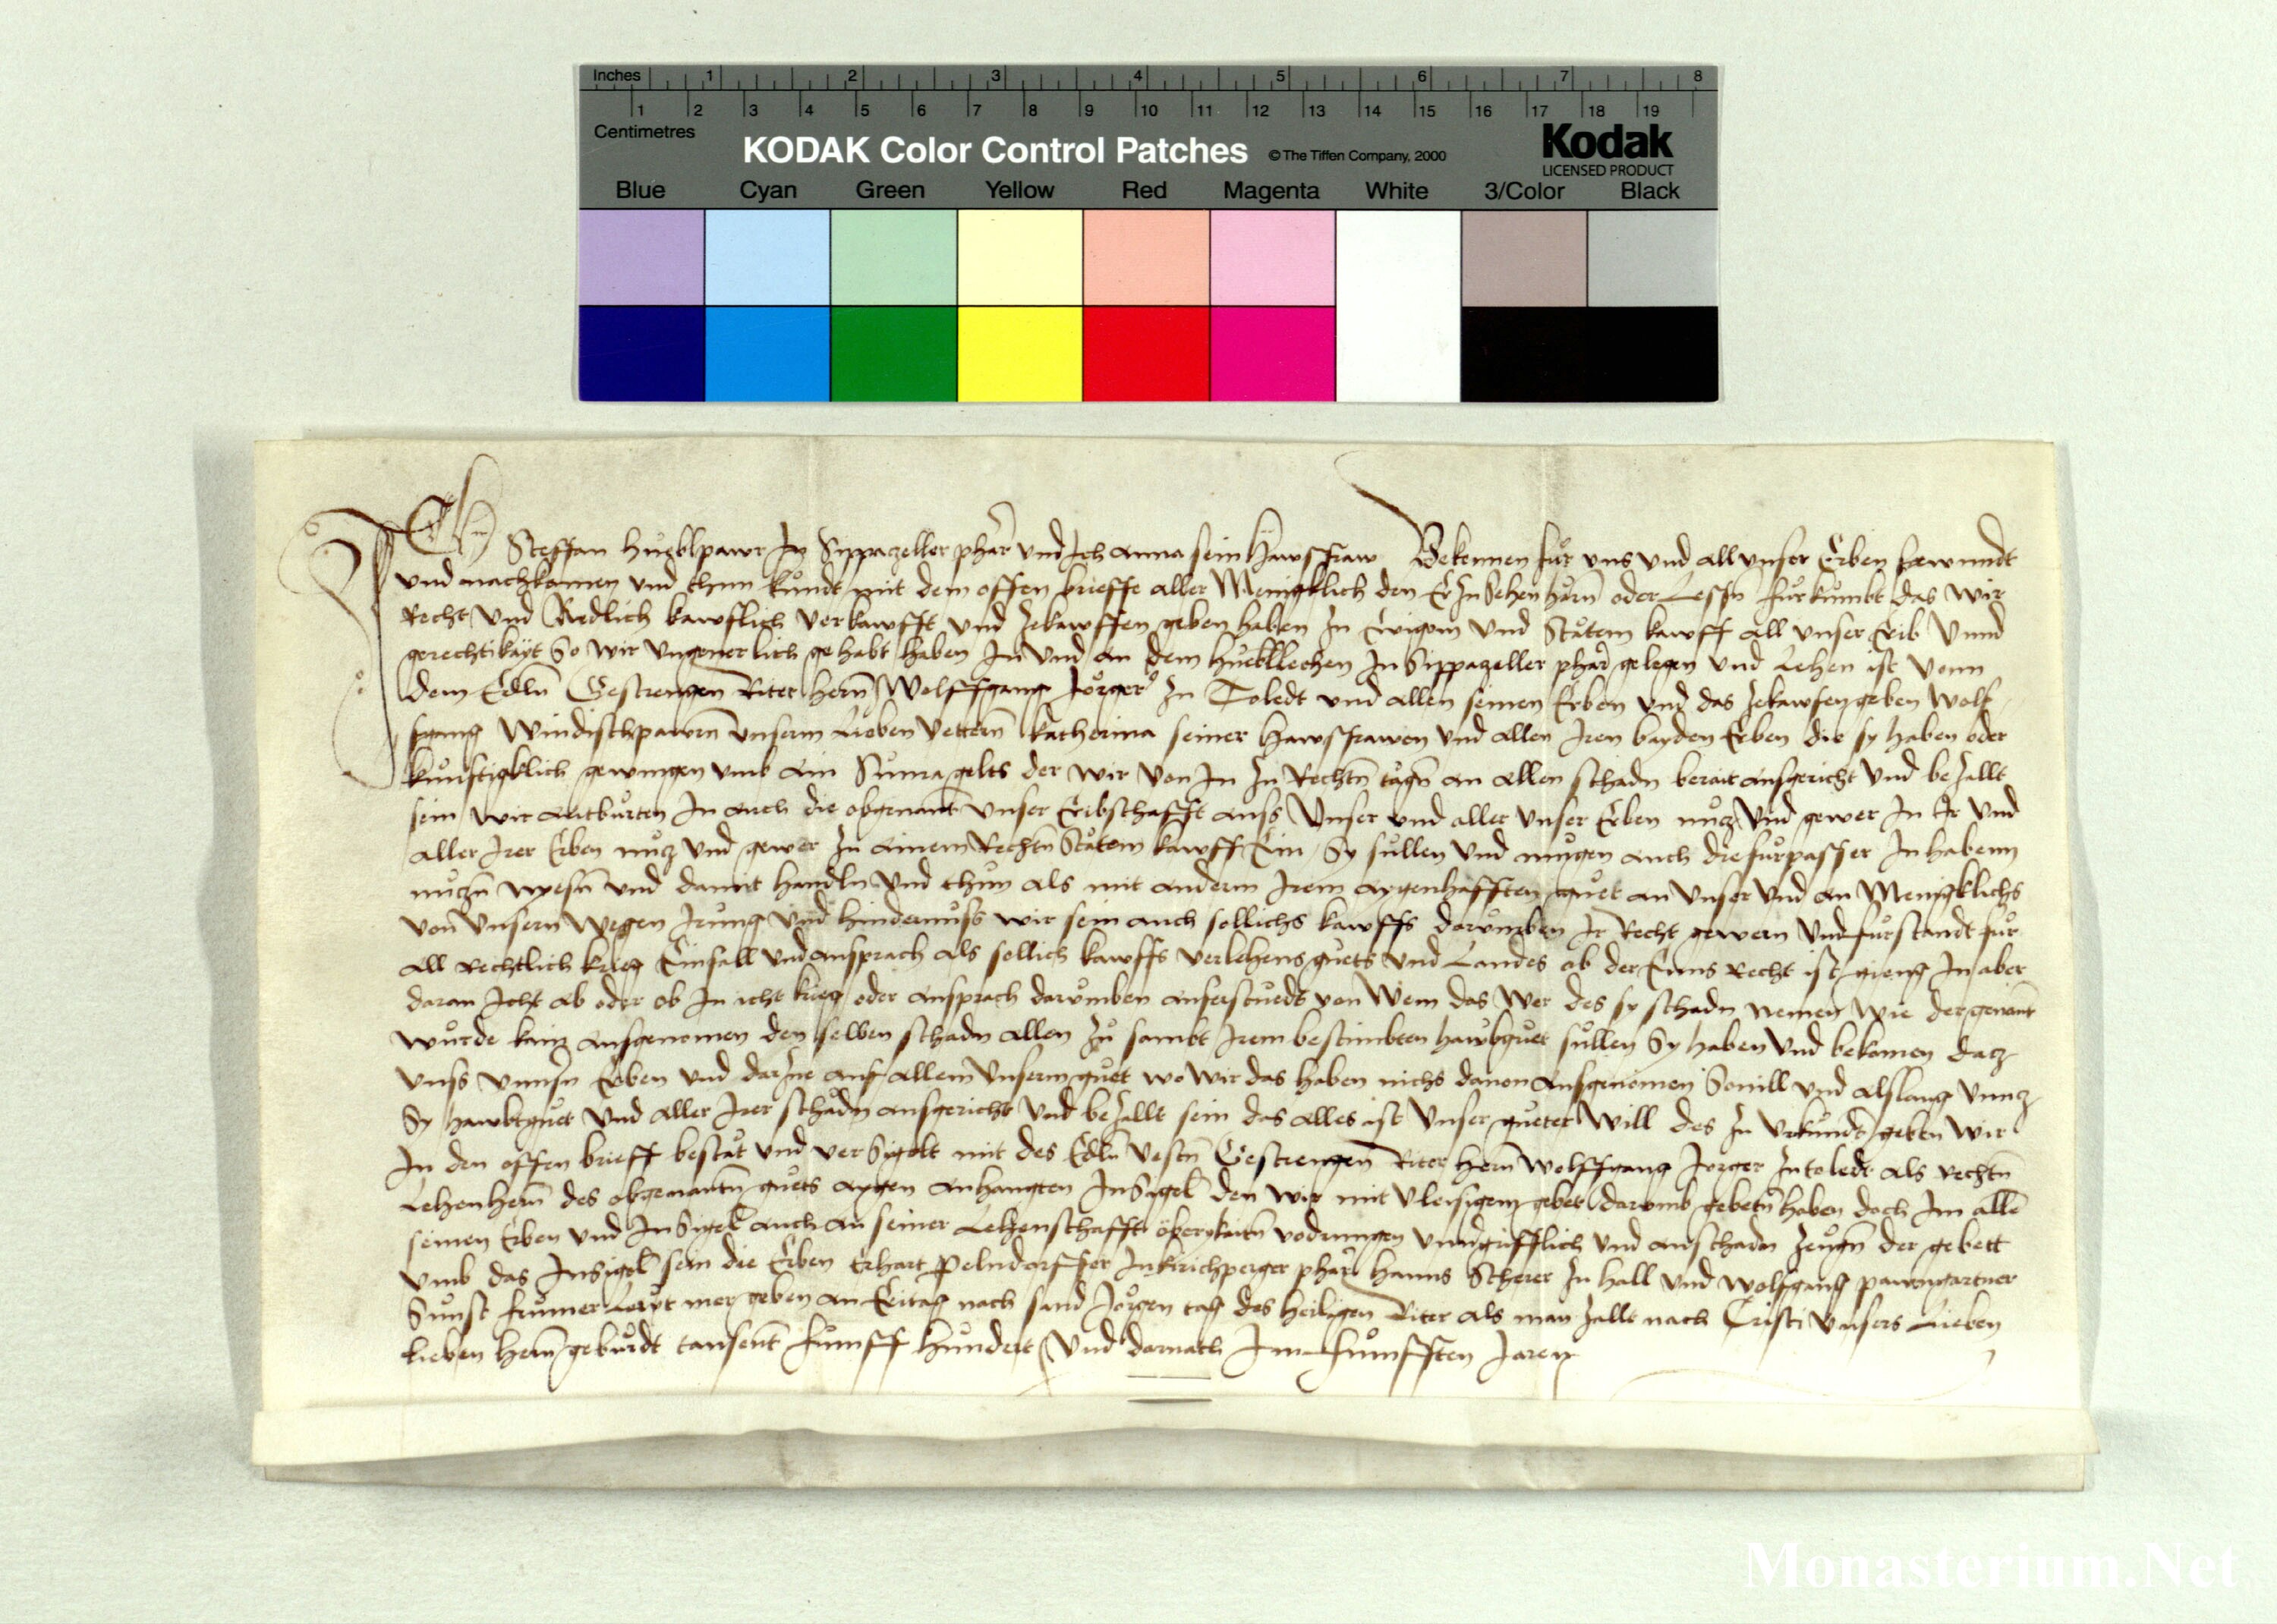 Inches 1 2 3 4 5 6 7 8
1 2 3 4 5 6 7 8 9 10 11 12 13 14 15 16 17 18 19
Centimetres
KODAK Color Control Patches © The Tiffen Company, 2000 Kodak
LICENSED PRODUCT
Blue Cyan Green Yellow Red Magenta White 3/Color Black
Ich Steffan Huekhlpawr In Sippazeller pharr vnd Ich anna sein Hawsfraw Bekennen fur vns vnd all vnser Erben frewnndt
vnd nachkomen vnd thun kundt mit dem offen brieffe aller Menigklich den Er In Sehen hörn oder Lessn furkumbt das wir
Recht vnd Redlich kawflich verkawfft vnd zekawffen geben haben In Ewigem vnd Stätem kawff all vnser Erib vnnd
gerechtikayt So wir vngeuerlich gehabt haben In vnd an dem Huekhllechen In Sippazeller pharr gelegen vnd Lehen ist vonn
dem Edln Gestrengen Riter hern Wolffgang Jörger zu Toledt vnd allen seinen Erben vnd das zekawfen geben Wolf
fgang Windischpawrn vnserm Lieben Vettern Katherina seiner Hawsfrawen vnd allen Iren bayden Erben die sy haben oder
kunftigklich gewingen vmb ain Suma gelts der wir von In zu Rechtn tägn an allen schadn berait ausgericht vnd bezallt
sein wir antburten In auch die obgenant vnser Eribschafft auss vnser vnd aller vnser Erben nucz vnd gewer In Ir vnd
aller Irer Erben nucz vnd gewer zu ainem Rechtn Stätem kawff Ein Sy sullen vnd mugen auch die furpasser Inhabenn
nuczn nyesn vnd damit handln vnd thun als mit anderm Irem aygenhafften guet an vnser vnd an Menigklichs
von vnsern wegen Irung vnd hindernuss wir sein auch sollichs kawffs darumben Ir Recht gewern vnd furstandt fur
all Rechtlich krieg Einfall vnd ansprach als sollich kawffs verlehens guets vnd Landes ob der Enns Recht ist gieng In aber
daran Icht ab oder ob In icht krieg oder ansprach darumben auferstuedt von wem das wer des sy schadn nemen wie der genant
wurde kain ausgenomen den selben schadn allen zu sambt Irem bestimbten hawbtguet sullen Sy haben vnd bekomen dacz
vnss vnnsn Erben vnd darzue auf allem vnserm guet wo wir das haben nichs dauon ausgenomen Souill vnd alslang vnncz
Sy hawbtguet vnd aller Irer schädn ausgericht vnd bezallt sein das alles ist vnser gueter will des zu vrkundt geben wir
In den offen brieff bestät vnd versigelt mit des Edln vestn Gestrengen Riter hern Wolffgang Jorger zu toledt als rechtn
Lehenhern des obgenantn guets aygen anhangten Insigel den wir mit vleisigem gebet darumb gebetn haben doch Im alle
seinen Erben vnd Insigel auch an seiner Lehenschafft öberkaitn vodrungen vnuergrifflich vnd anschadn zeugn der gebett
vmb das Insigel sein die Erben Erhart Pelndorffer In kirichperger pharr Hanns Scherer zu hall vnd Wolfgang pawmgartner
Sunst frumer Lewt mer geben an Eritag nach sand Jörgen tag des heiligen Riter als man zallt nach Cristi vnsers Lieben
Lieben hern geburdt tausent funff hundert vnd darnach Im funfften Jaren
Monasterium.Net